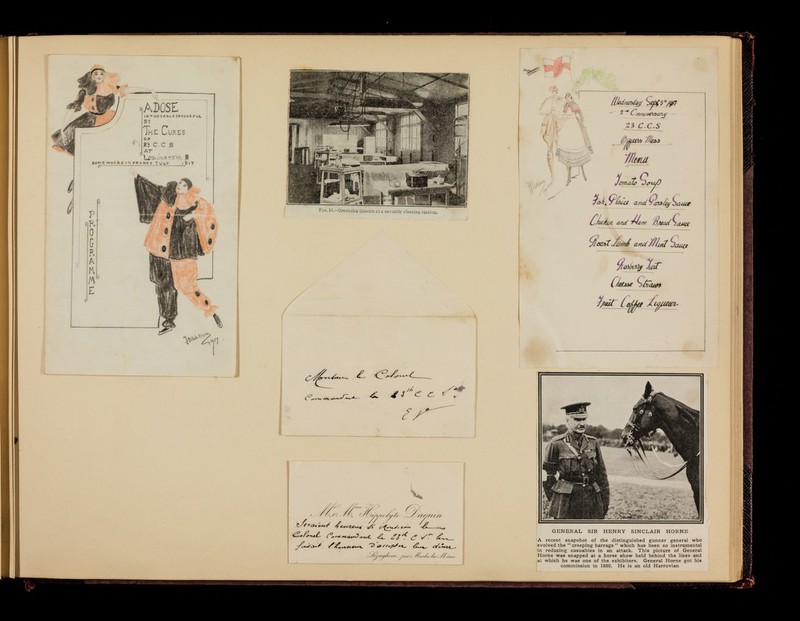 A DOSE
BY
THE CURES
OF
23 C.C.S
AT
SOMEWHERE IN FRANCE
PROGRAMME
FIG. 15.—Operating theatre at a casualty clearing station.
Monsieur le Colonel
Commandant la 23th C C S
E V
M. & Mme Hippolyte Daquin
Seraient heureux si Monsieur le
Colonel Commandant la 23th C C S leur
faisait l'honneur d'accepter leur dîner
Wednesday Sept 5th 1917
2nd Anniversary
23 C.C.S
Officers Mess
Menu
Tomato Soup
Fish, Plaice and Parsley Sauce
Chicken and Ham Bread Sauce
Roast Lamb and Mint Sauce
Cheese Straws
Fruit Coffee Liqueur
GENERAL SIR HENRY SINCLAIR HORNE
A recent snapshot of the distinguished gunner general who
evolved the "creeping barrage" which has been so instrumental
in reducing casualties in an attack. This picture of General
Horne was snapped at a horse show held behind the lines and
at which he was one of the exhibitors. General Horne got his
commission in 1880. He is an old Harrovian